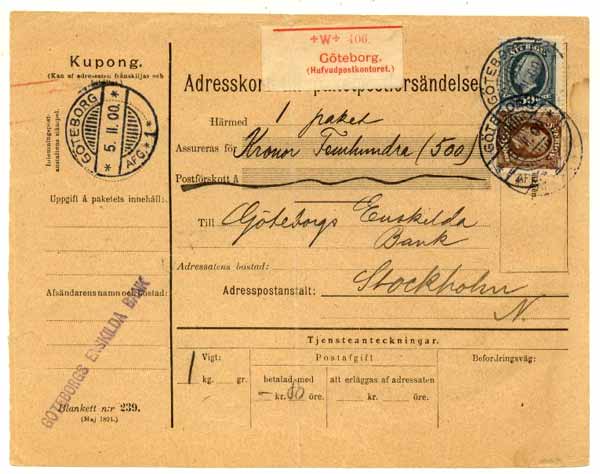 Kupong.
(Kan af adressaten frånskiljas och behållas.)
GÖTEBORG
5. 11. 00.
AFG. 1
Inlemningspost-
anstaltens stämpel.
Uppgift å paketets innehåll:
Afsändarens namn och bostad:
GÖTEBORGS ENSKILDA BANK
Blankett n:r 239.
(Maj 1891.)
W 406
Göteborg.
(Hufvudpostkontoret.)
Härmed 1 paket
Assureras för Kronor Femhundra (500)
Postförskott å
Till Göteborgs Enskilda
Bank
Adressatens bostad:
Adresspostanstalt: Stockholm
N.
GÖTEBORG
GÖTEBORG
Tjensteanteckningar.
Vigt: Postafgift Befordringsväg:
1 kg. gr. betalad med att erläggas af adressaten
kr. 80 öre. kr. öre.